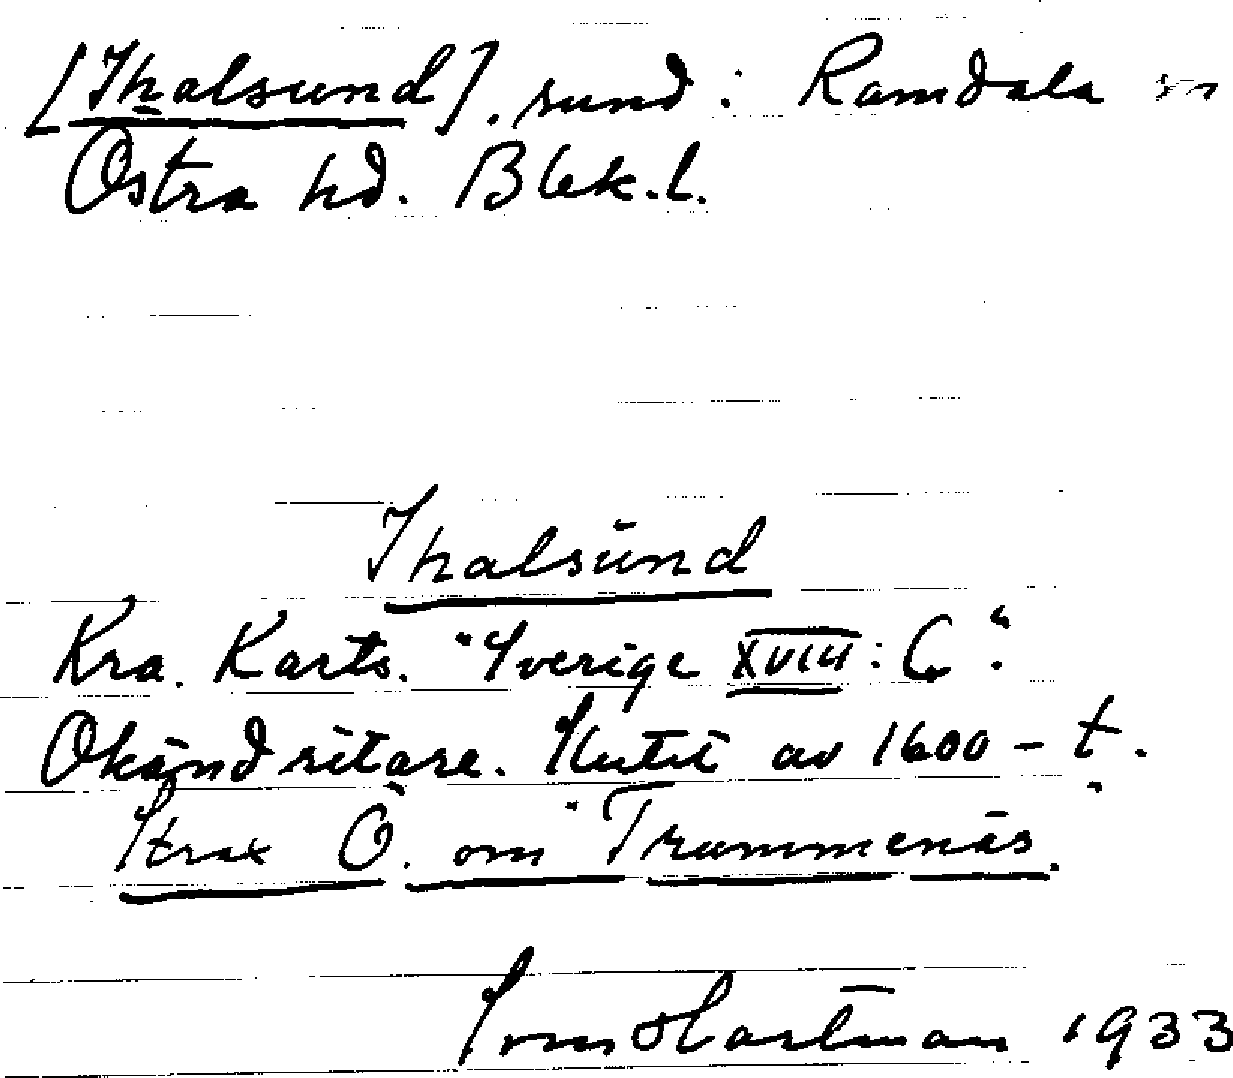 [Thalsund]. sund: Ramdala sn
Östra hd. Blek.l.
Thalsund
Kra. Karts. "Sverige XVIII: C".
Okänd ritare. Slutet av 1600-t.
Strax Ö. om Trummenäs.
Hartman 1933